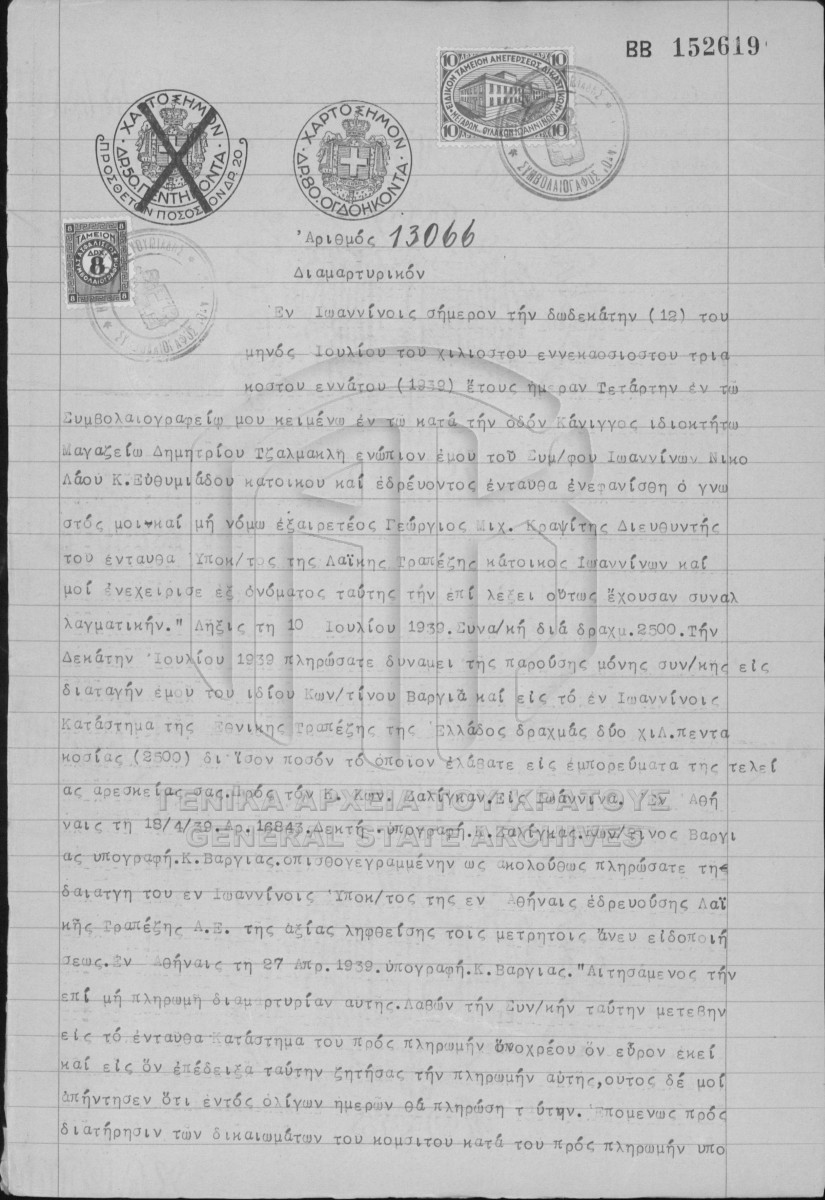 ΒΒ 152619
10 ΕΙΔΙΚΟΝ ΤΑΜΕΙΟΝ ΑΝΕΓΕΡΣΕΩΣ ΔΙΚΑΣΤΙΚΟΥ 10
10 ΜΕΓΑΡΟΥ ΦΥΛΑΚΩΝ ΙΩΑΝΝΙΝΩΝ 10
ΣΥΜΒΟΛΑΙΟΓΡΑΦΟΣ
ΧΑΡΤΟΣΗΜΟΝ
ΔΡ. 50. ΠΕΝΤΗΚΟΝΤΑ
ΠΡΟΣΘΕΤΟΝ ΠΟΣΟΣΤΟΝ ΔΡ. 20
ΧΑΡΤΟΣΗΜΟΝ
ΔΡ. 80. ΟΓΔΟΗΚΟΝΤΑ
ΤΑΜΕΙΟΝ
ΔΡΧ.
8
Ἀριθμός 13066
Διαμαρτυρικόν
Εν Ιωαννίνοις σήμερον τήν δωδεκάτην (12) του
μηνός Ιουλίου του χιλιοστου εννεκαοσιοστου τρια
κοστου εννάτου (1939) ἔτους ἡμεραν Τετάρτην ἐν τῶ
Συμβολαιογραφείῳ μου κειμένω ἐν τῶ κατά τήν ὁδόν Κάνιγγος ἰδιοκτήτω
Μαγαζείω Δημητρίου Τζαλμακλη ενώπιον ἐμου τοῦ Συμ/φου Ιωαννίνων Νικο
λάου Κ.Εὐθυμιάδου κατοικου καί ἑδρέυοντος ἐνταυθα ἐνεφανίσθη ὁ γνω
στός μοι καί μή νόμω ἐξαιρετέος Γεώργιος Μιχ. Κραψίτης Διευθυντής
του ἐνταυθα Υποκ/τος της Λαϊκης Τραπέζης κάτοικος Ιωαννίνων καί
μοί ἐνεχειρισε ἐξ ὀνόματος ταύτης τήν ἐπί λέξει οὕτως ἔχουσαν συναλ
λαγματικήν." Λήξις τη 10 Ιουλίου 1939.Συνα/κή διά δραχμ.2500.Τήν
Δεκάτην Ἰουλίου 1939 πληρώσατε δυναμει της παρούσης μόνης συν/κης εἰς
διαταγήν ἐμου του ἰδίου Κων/τίνου Βαργιᾶ καί εἰς τό ἐν Ιωαννίνοις
Κατάστημα της Ἐθνικης Τραπέζης της Ἑλλάδος δραχμάς δύο χιλ.πεντα
κοσίας (2500) δι ἴσον ποσόν τό ὁποίον ἐλάβατε εἰς ἐμπορεύματα της τελεί
ας αρεσκείας σας.Πρός τόν Κ. Κων. Ζαλίγκαν.Εἰς Ιωάννινα. Ἐν Ἀθή
ναις τη 18/4/39.Αρ.16843.Δεκτή ὑπογραφή.Κ.Ζαλίγκας.Κων/τινος Βαργι
ας υπογραφή.Κ.Βαργιας.οπισθογεγραμμένην ως ακολούθως πληρώσατε τη
δαιατγη του εν Ιωαννίνοις Ὑποκ/τος της εν Ἀθήναις ἑδρευούσης Λαϊ
κῆς Τραπέζης Α.Ε. της ἀξίας ληφθείσης τοις μετρητοις ἄνευ εἰδοποιή
σεως.Εν Ἀθήναις τη 27 Απρ.1939.ὑπογραφή.Κ.Βαργιας."Αιτησάμενος τήν
ἐπί μή πληρωμη διαμαρτυρίαν αυτης.Λαβών τήν Συν/κήν ταύτην μετεβην
εἰς τό ἐνταυθα Κατάστημα του πρός πληρωμήν ὑποχρέου ὅν εὗρον ἐκεί
καί εἰς ὅν ἐπέδειξα ταύτην ζητήσας τήν πληρωμήν αὐτῆς,ουτος δέ μοί
ἀπήντησεν ὅτι ἐντός ὀλίγων ἡμερῶν θά πληρώση τ ύτην. Ἑπομενως πρός
διατήρησιν τῶν δικαιωμάτων του κομσιτου κατά του πρός πληρωμήν υπο
ΓΕΝΙΚΑ ΑΡΧΕΙΑ ΤΟΥ ΚΡΑΤΟΥΣ
GENERAL STATE ARCHIVES